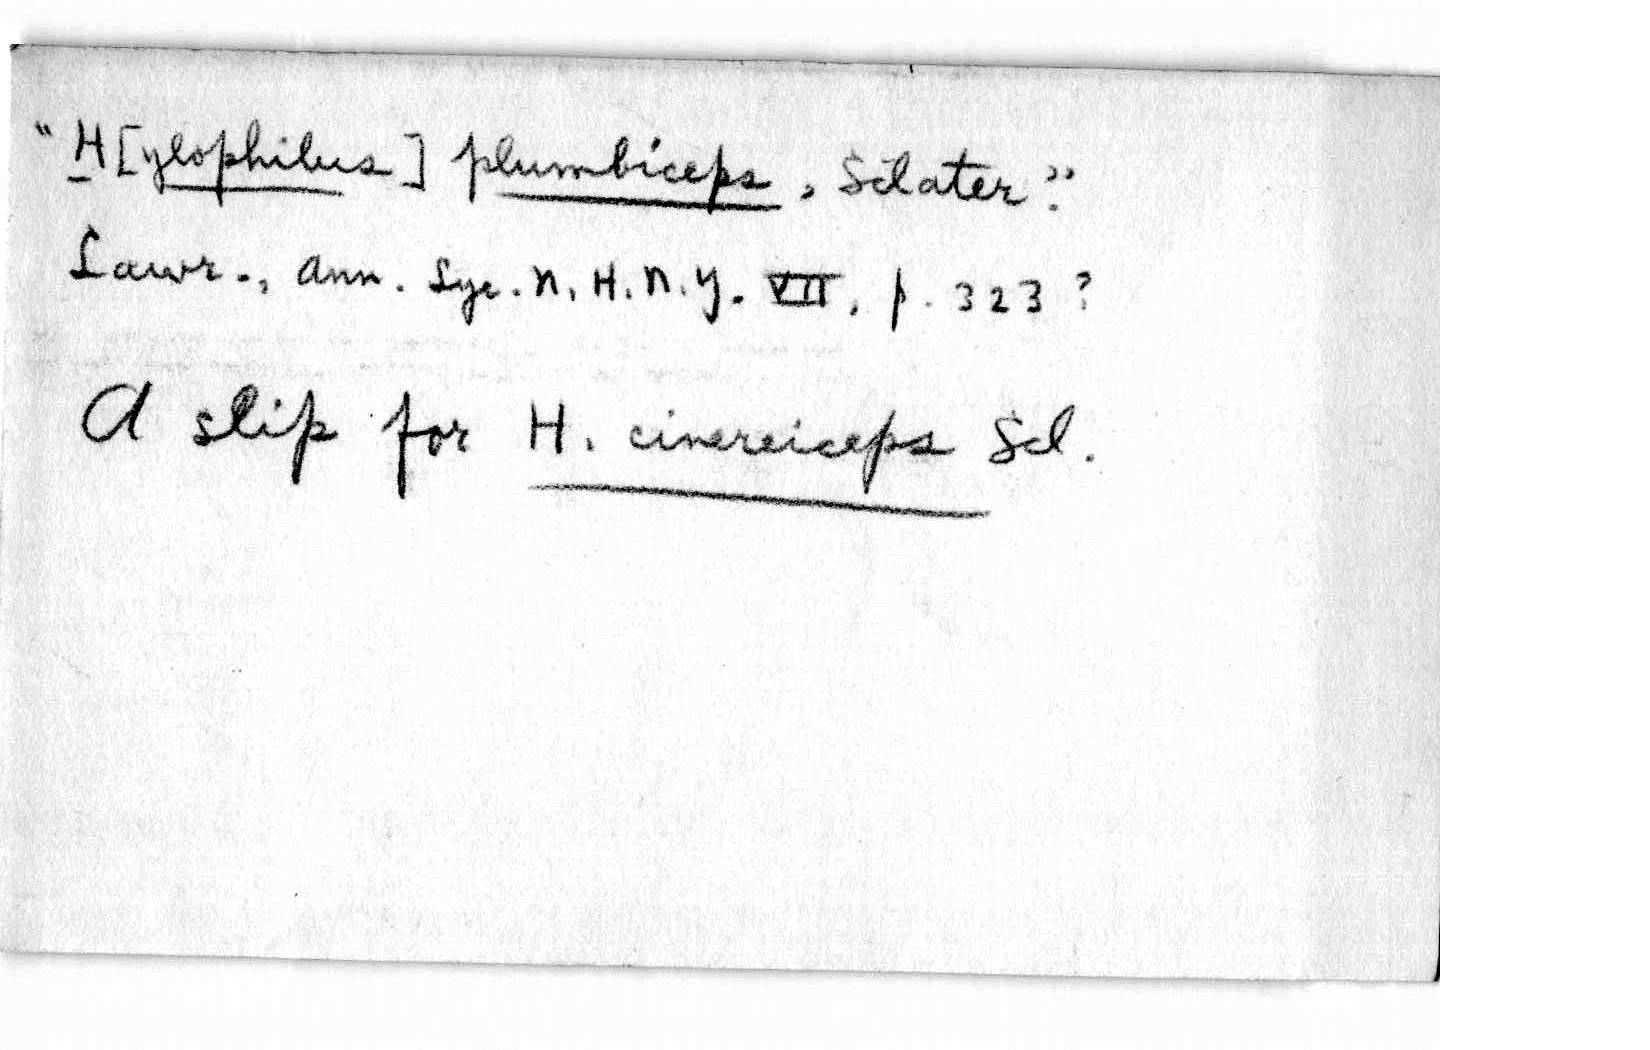 "H[ylophilus] plumbiceps, Sclater?"
Lawr., Ann. Lyc. N. H. N. Y. VII, p. 323?
A slip for H. cinereiceps Scl.